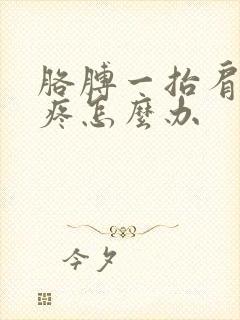 胳膊一抬肩
疼怎麼办
今夕